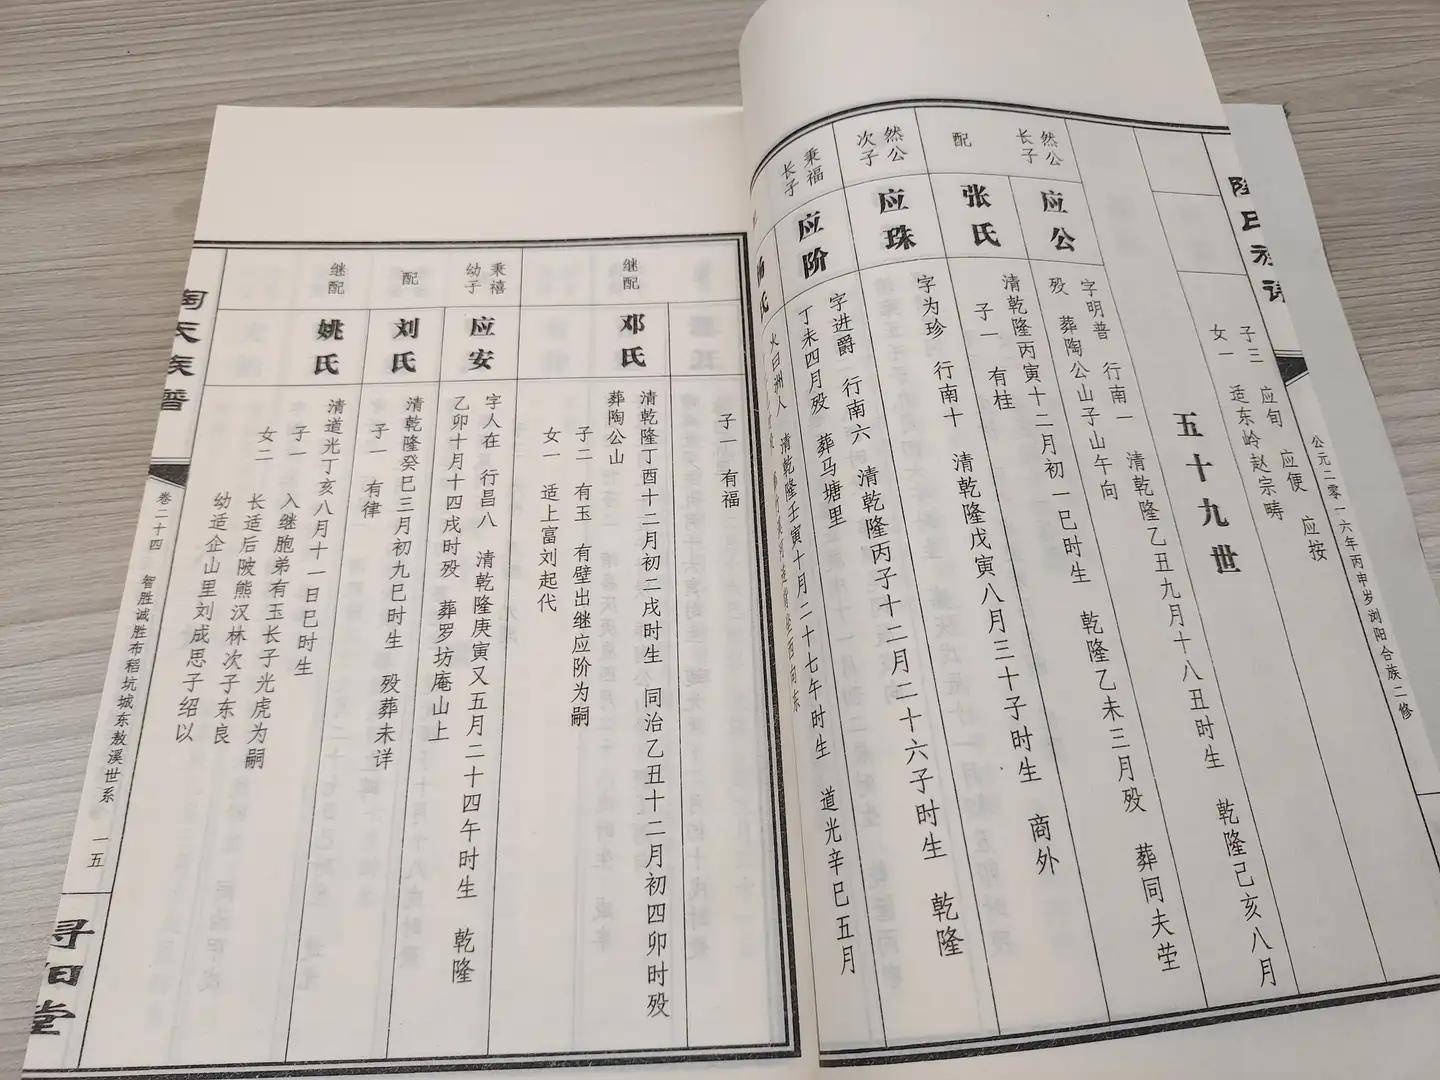 子三 应旬 应便 应按
女一 适东岭赵宗畴
公元二零一六年丙申岁浏阳合族二修
五十九世
然公长子
应公
清乾隆乙丑九月十八丑时生 乾隆己亥八月
字明普 行南一
殁 葬陶公山子山午向
配
张氏
清乾隆丙寅十二月初一巳时生 乾隆乙未三月殁 葬同夫茔
子一 有桂
然公次子
应珠
字为珍 行南十 清乾隆戊寅八月三十子时生 商外
秉福长子
应阶
字进爵 行南六 清乾隆丙子十二月二十六子时生 乾隆
丁未四月殁 葬马塘里
氏
清乾隆壬寅十月二十七午时生 道光辛巳五月
子一 有福
继配
邓氏
清乾隆丁酉十二月初二戌时生 同治乙丑十二月初四卯时殁
葬陶公山
子二 有玉 有壁出继应阶为嗣
女一 适上富刘起代
秉禧幼子
应安
字人在 行昌八 清乾隆庚寅又五月二十四午时生 乾隆
乙卯十月十四戌时殁 葬罗坊庵山上
配
刘氏
清乾隆癸巳三月初九巳时生 殁葬未详
子一 有律
继配
姚氏
清道光丁亥八月十一日巳时生
子一 入继胞弟有玉长子光虎为嗣
女二 长适后陂熊汉林次子东良
幼适企山里刘成思子绍以
卷二十四 智胜诚胜布稻坑城东敖溪世系 一五
寻阳堂